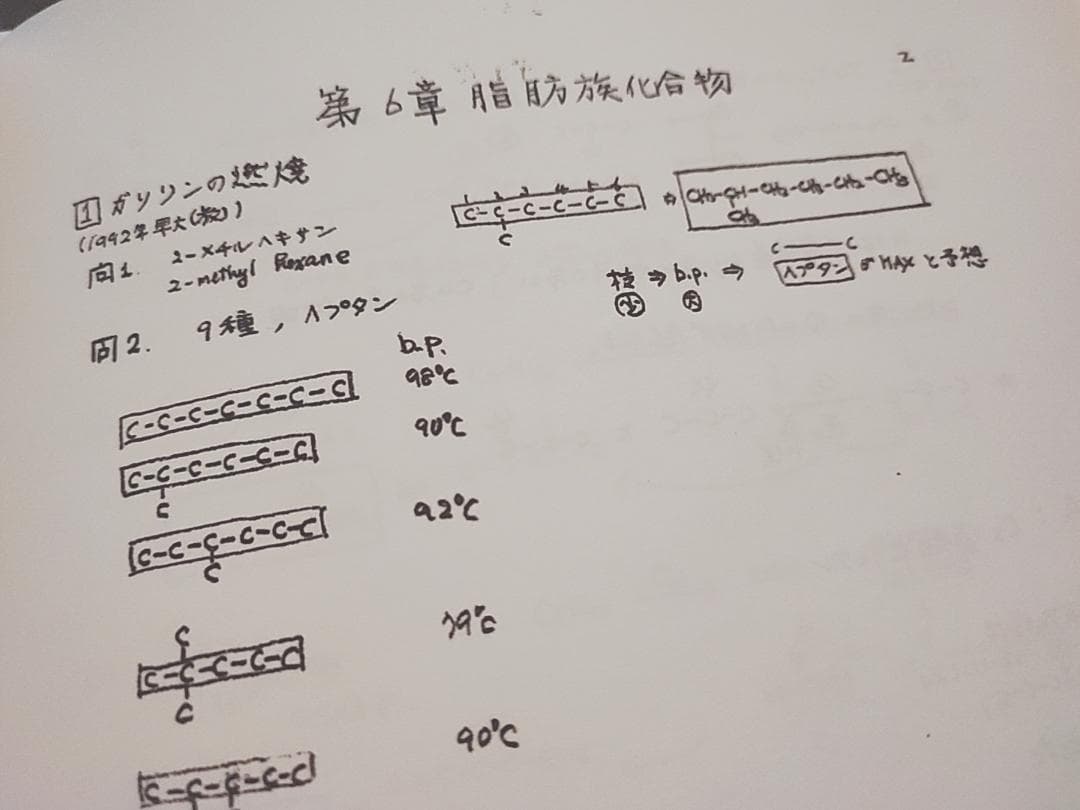 2
第6章 脂肪族化合物
1 ガソリンの燃焼
(1992年早大(教))
問1. 2-メチルヘキサン
2-methyl hexane
1 2 3 4 5 6
C-C-C-C-C-C
C
⇒ CH3-CH-CH2-CH2-CH2-CH3
CH3
枝 ⇒ b.p. ⇒ C—C
小 大 ヘプタン がMAXと予想
問2. 9種, ヘプタン
b.p.
C-C-C-C-C-C-C 98°C
C-C-C-C-C-C 90°C
C
C-C-C-C-C-C 92°C
C
C
C-C-C-C-C 79°C
C
C-C-C-C-C 90°C